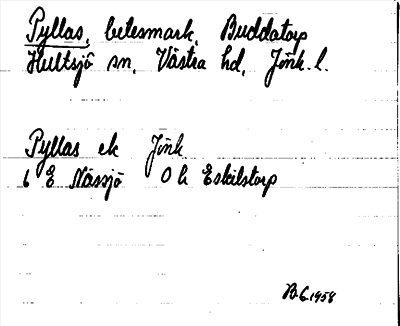 Pyllas, betesmark, Buddatorp
Hultsjö sn, Västra hd, Jönk. l.
Pyllas ek Jönk
6 E Nässjö O h Eskilstorp
B.G. 1958